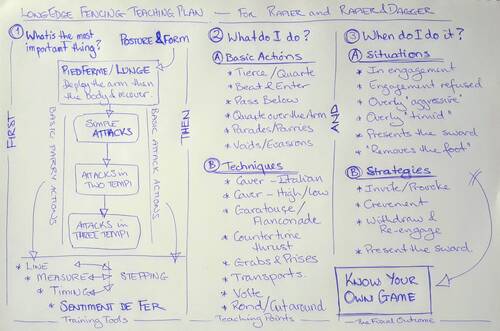 LongEdge Fencing Teaching Plan – For Rapier and Rapier & Dagger
① What is the most important thing?
Posture & Form
Pied Ferme / Lunge
Deploy the arm then the body & recover.
First
Then
Basic Parry Actions
Basic Attack Actions
Simple Attacks
Attacks in Two Tempi
Attacks in Three Tempi
* Line
* Measure
Stepping
* Timing
* Sentiment de Fer
Training Tools
② What do I do?
Ⓐ Basic Actions
* Tierce/Quarte
* Beat & Enter
* Pass Below
* Quarte over the Arm
* Parades/Parries
* Voids/Evasions
Ⓑ Techniques
* Caver – Italian
* Caver – High/Low
* Garatouge/
Flanconade
* Countertime
thrust
* Grabs & Prises
* Transports.
* Volte
* Rond/Cut around
Teaching Points
And
③ When do I do it?
Ⓐ Situations
* In engagement
* Engagement refused
* Overly "aggressive"
* Overly "timid"
* Presents the sword
* "Removes the foot"
Ⓑ Strategies
* Invite/Provoke
* Crevement
* Withdraw &
Re-engage
* Present the sword.
Know Your
Own Game
The Final Outcome